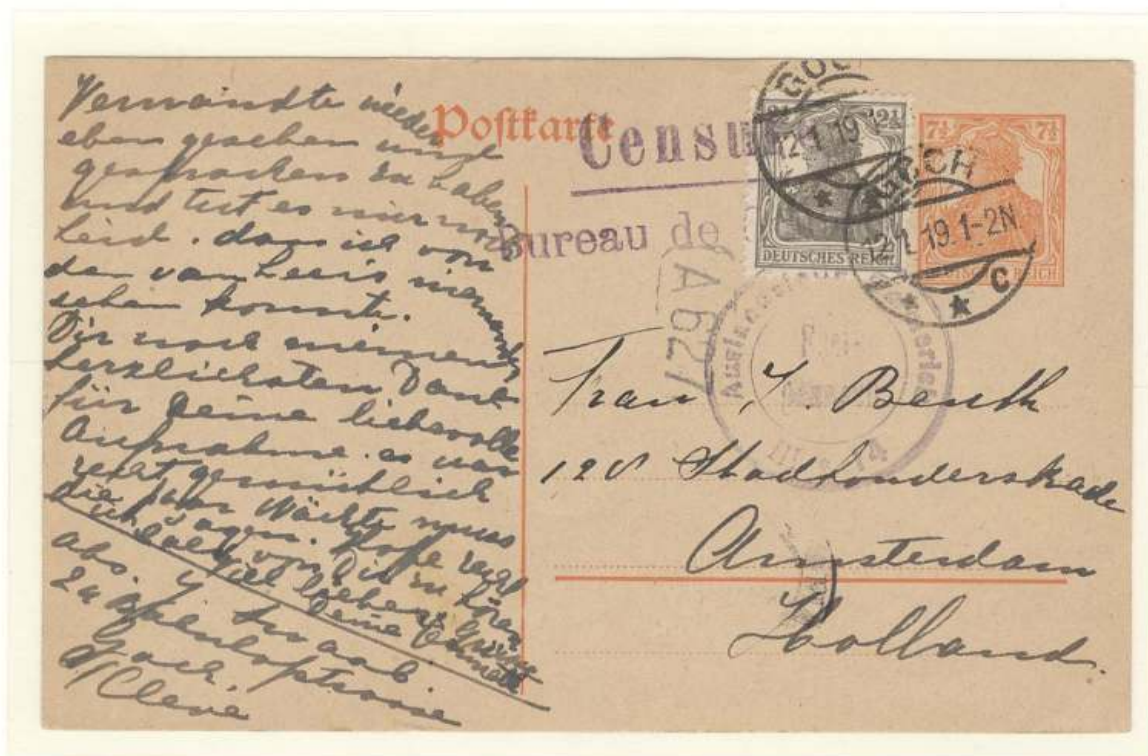 Verwandte wieder
eben gesehen und
gesprochen zu haben
und tut es mir noch
Leid. dass ich von
den van Leers niemanden
sehen konnte.
Dir noch meinen
herzlichsten Dank
für Deine liebevolle
Aufnahme. es war
recht gemütlich
die paar Nächte muss
ich sagen. Hoffe recht
bald von Dir zu hören
viel liebe Grüße
Deine
abs.
Goch
b/Cleve
Postkarte
Censur
Bureau de
A627
GOCH
12.1.19
2½ 2½
DEUTSCHES REICH
7½ 7½
GOCH
12.1.19.1-2N
★ ★ C
Frau J. Benth
128 Stadhouderskade
Amsterdam
Holland.